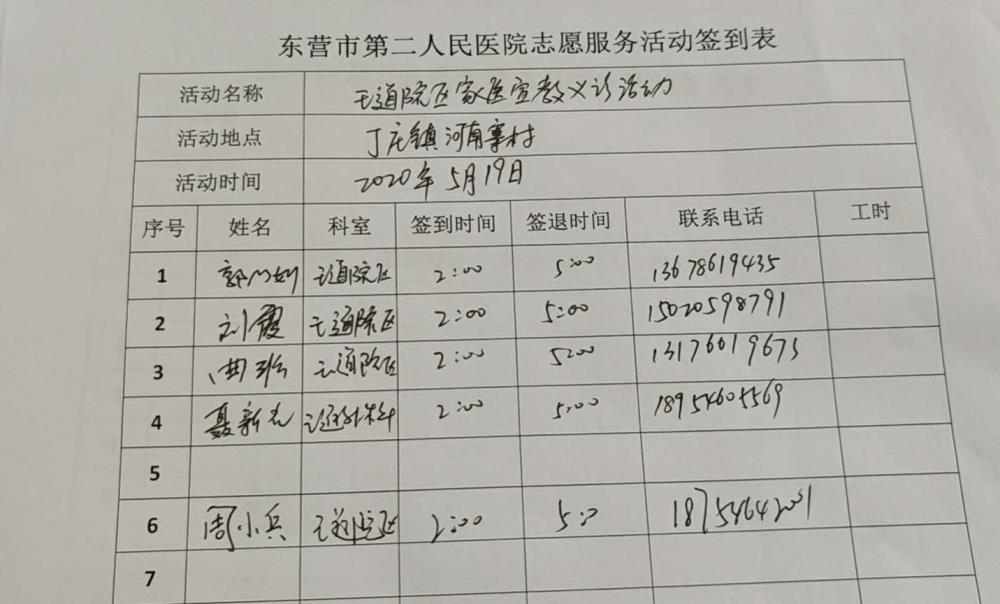 东营市第二人民医院志愿服务活动签到表
活动名称 王道院区家医宣教义诊活动
活动地点 丁庄镇河南寨村
活动时间 2020年5月19日
序号 姓名 科室 签到时间 签退时间 联系电话 工时
1 郭 王道院区 2:00 5:00 13678619435
2 刘霞 王道院区 2:00 5:00 15020598791
3 曲 王道院区 2:00 5:00 13176019675
4 聂新 王道外科 2:00 5:00 18954605569
5
6 周小兵 王道院区 2:00 5:0 18754642001
7